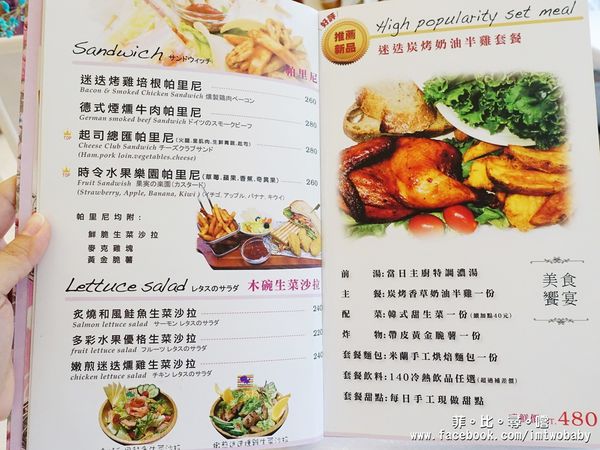 Sandwich サンドウィッチ
帕里尼
迷迭烤雞培根帕里尼
Bacon & Smoked Chicken Sandwich 燻製鶏肉ベーコン
260
德式煙燻牛肉帕里尼
German smoked beef Sandwich ドイツのスモークビーフ
280
TOP
起司總匯帕里尼(火腿,里肌肉,生鮮蕃蔬,起司)
Cheese Club Sandwich チーズクラブサンド
280
(Ham.pork loin.vegetables.cheese)
TOP
時令水果樂園帕里尼(草莓,蘋果,香蕉,奇異果)
Fruit Sandwish 果実の楽園(カスタード)
260
(Strawberry, Apple, Banana, Kiwi)(イチゴ, アップル, バナナ, キウイ)
帕里尼均附:
鮮脆生菜沙拉
麥克雞塊
黃金脆薯
Lettuce salad レタスのサラダ
木碗生菜沙拉
炙燒和風鮭魚生菜沙拉
Salmon lettuce salad サーモンレタスのサラダ
240
多彩水果優格生菜沙拉
fruit lettuce salad フルーツレタスのサラダ
240
嫩煎迷迭燻雞生菜沙拉
chicken lettuce salad チキンレタスのサラダ
240
好評
推薦
新品
High popularity set meal
迷迭炭烤奶油半雞套餐
前湯:當日主廚特調濃湯
主餐:炭烤香草奶油半雞一份
配菜:韓式甜生菜一份(續加點40元)
炸物:帶皮黃金脆薯一份
套餐麵包:米蘭手工烘焙麵包一份
套餐飲料:140冷熱飲品任選(超過補差價)
套餐甜點:每日手工現做甜點
美食
饗宴
NT. 480
菲。比。尋。嚐
www.facebook.com/imtwobaby